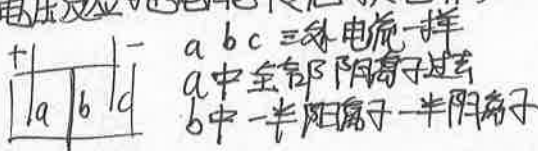 电压反应
+ - a b c 三处电流一样
a中全部阴离子过去
a b c
b中一半阳离子一半阴离子